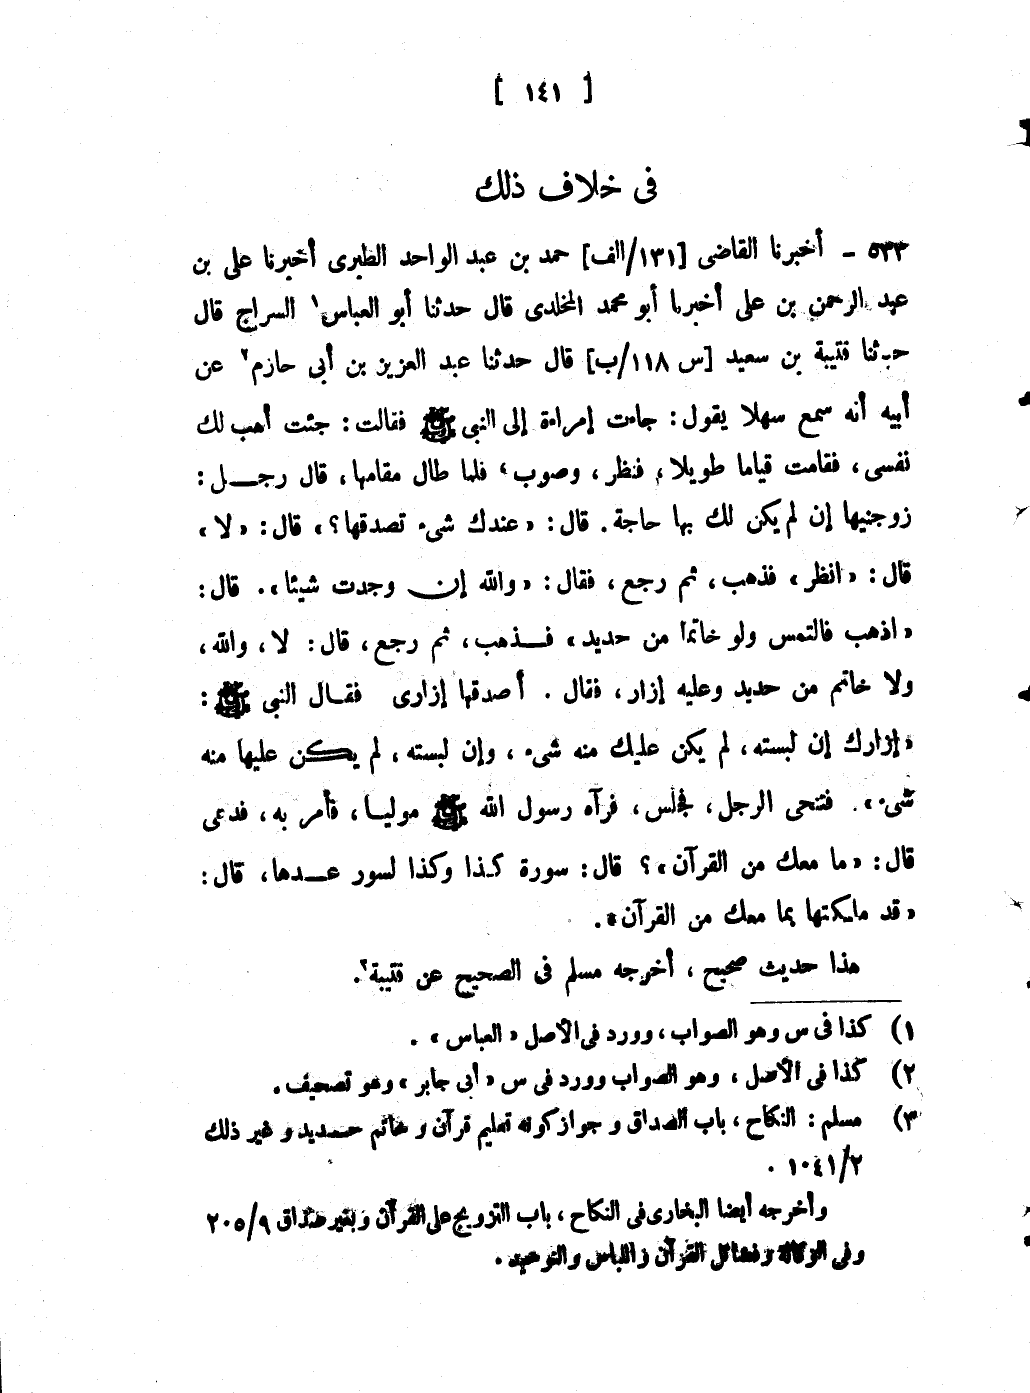 [ ١٤١ ]
فى خلاف ذلك
٥٣٣ - أخبرنا القاضى [١٣١/الف] حمد بن عبد الواحد الطبرى أخبرنا على بن
عبد الرحمن بن على أخبرنا أبو محمد المخلدى قال حدثنا أبو العباس١ السراج قال
حدثنا قتيبة بن سعيد [س ١١٨/ب] قال حدثنا عبد العزيز بن أبى حازم٢ عن
أبيه أنه سمع سهلا يقول: جاءت إمراءة إلى النبى ﷺ فقالت: جئت أهب لك
نفسى، فقامت قياما طويلا، فنظر، وصوب، فلما طال مقامها، قال رجــل:
زوجنيها إن لم يكن لك بها حاجة. قال: «عندك شىء تصدقها؟» قال: «لا»
قال: «انظر» فذهب، ثم رجع، فقال: «والله إن وجدت شيئا». قال:
«اذهب فالتمس ولو خاتما من حديد» فــذهب، ثم رجع، قال: لا، والله،
ولا خاتم من حديد وعليه إزار، فقال. أصدقها إزارى فقــال النبى ﷺ:
«إزارك إن لبسته، لم يكن عليك منه شىء، وإن لبسته، لم يكن عليها منه
شىء». فتنحى الرجل، فجلس، فرآه رسول الله ﷺ موليــا، فأمر به، فدعى
قال: «ما معك من القرآن»؟ قال: سورة كذا وكذا لسور عــدها، قال:
«قد ملكتها بما معك من القرآن».
هذا حديث صحيح، أخرجه مسلم فى الصحيح عن قتيبة٣.
١) كذا فى س وهو الصواب، وورد فى الأصل «العباس».
٢) كذا فى الأصل، وهو الصواب وورد فى س «أبى جابر» وهو تصحيف.
٣) مسلم: النكاح، باب الصداق و جواز كونه تعليم قرآن و خاتم حــديد و غير ذلك
١٠٤١/٢.
وأخرجه أيضا البخارى فى النكاح، باب التزويج على القرآن وبغير صداق ٢٠٥/٩
وفى الوكالة وفضائل القرآن واللباس والتوحيد.